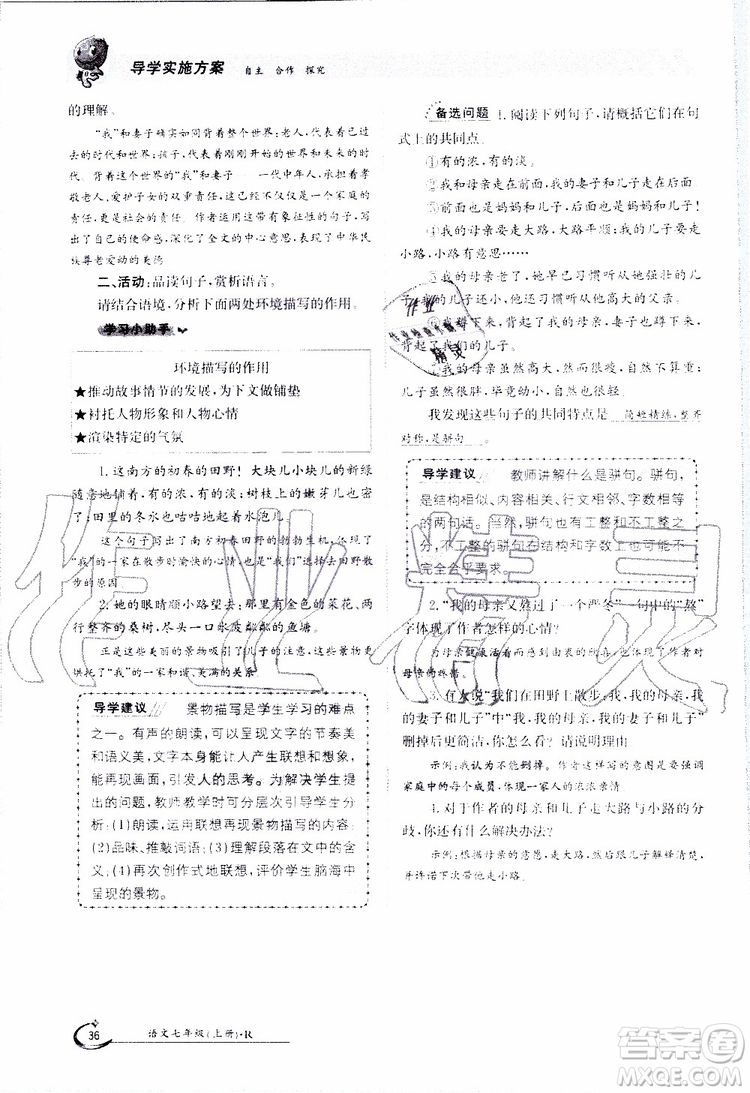 导学实施方案 自主 合作 探究
的理解。
“我”和妻子确实如同背着整个世界：老人，代表着过
去的时代和世界；孩子，代表着刚刚开始的世界和未来的时
代。背着整个世界的“我”和妻子——一代中年人，承担着孝
敬老人、爱护子女的双重责任，这不仅仅是一个家庭的责
任，更是社会的责任。作者运用这带有象征性的句子，写
出了自己的使命感，深化了全文的中心意思，表现了中华民
族尊老爱幼的美德
二、活动：品读句子，赏析语言。
请结合语境，分析下面两处环境描写的作用。
学习小助手
环境描写的作用
★推动故事情节的发展，为下文做铺垫
★衬托人物形象和人物心情
★渲染特定的气氛
1. 这南方的初春的田野！大块儿小块儿的新绿
随意地铺着，有的浓，有的淡；树枝上的嫩芽儿也
密了；田里的冬水也咕咕地起着水泡儿
这个句子写出了南方初春田野的勃勃生机，表现了
“我”一家人在散步时愉快的心情；暗示了我们喜欢到田野散
步的原因
2. 她的眼睛顺小路望去：那里有金色的菜花、两
行整齐的桑树，尽头一口水波粼粼的鱼塘。
正是这些美丽的景物吸引了儿子的注意，这些景物更
烘托了“我”一家的和谐、美满的关系
导学建议
景物描写是学生学习的难点
之一。有声的朗读，可以呈现出文字的节奏美
和语义美，文字本身能让人产生联想和想象，
能再现画面，引发人的思考。为解决学生提
出的问题，教师教学时可以组织学生这样学
习：(1)朗读，运用朗读呈现景物描写的内容；
(2)品味、推敲词语；(3)理解段落在文中的含
义；(4)再次创作式地联想，评价学生脑海中
呈现的景物。
备选问题 1. 阅读下列句子，请概括它们在句
式上的共同点。
①有的浓，有的淡。
②前面是我和母亲，后面是我的妻子和儿子
③前面也是妈妈和儿子，后面也是妈妈和儿子。
④我的母亲要走大路，大路平顺；我的儿子要走
小路，小路有意思……
⑤我的母亲老了，她早已习惯听从她强壮的儿
子；我的儿子还小，他还习惯听从他高大的父亲。
⑥我蹲下来，背起了我的母亲，妻子也蹲下来，背
起了我们的儿子。
⑦我的母亲虽然高大，然而很瘦，自然不算重；
儿子虽然很胖，毕竟幼小，自然也轻
我发现这些句子的共同特点是 简短精练，整齐
对称，是骈句 。
导学建议
教师讲解什么是骈句。骈句，
是结构相似、内容相关、行文相邻、字数相等
的两句话。当然，骈句也有工整和不工整之
分，不工整的骈句在结构和字数上可以不
完全合乎要求。
2. “我的母亲又熬过了一个严冬”一句中的“熬”
字体现了作者怎样的心情？
为母亲能活着而感到由衷的欣喜，也体现了作者对
母亲的挚爱。
3. 有人说“我们在田野上散步：我，我的母亲，我
的妻子和儿子”中“我，我的母亲，我的妻子和儿子”
删掉后更简洁，你怎么看？请说明理由
示例：我认为不能删掉。作者这样写的意图是要强调
家庭中的每个成员，体现一家人的浓浓亲情
4. 对于作者的母亲和儿子走大路与小路的分
歧，你还有什么解决办法？
示例：听从母亲的意愿，走大路，然后跟儿子解释清楚，
并许诺下次带他走小路。
36 语文七年级(上册)·R
作业精灵
作业
精灵
答案圈
MXQE.COM